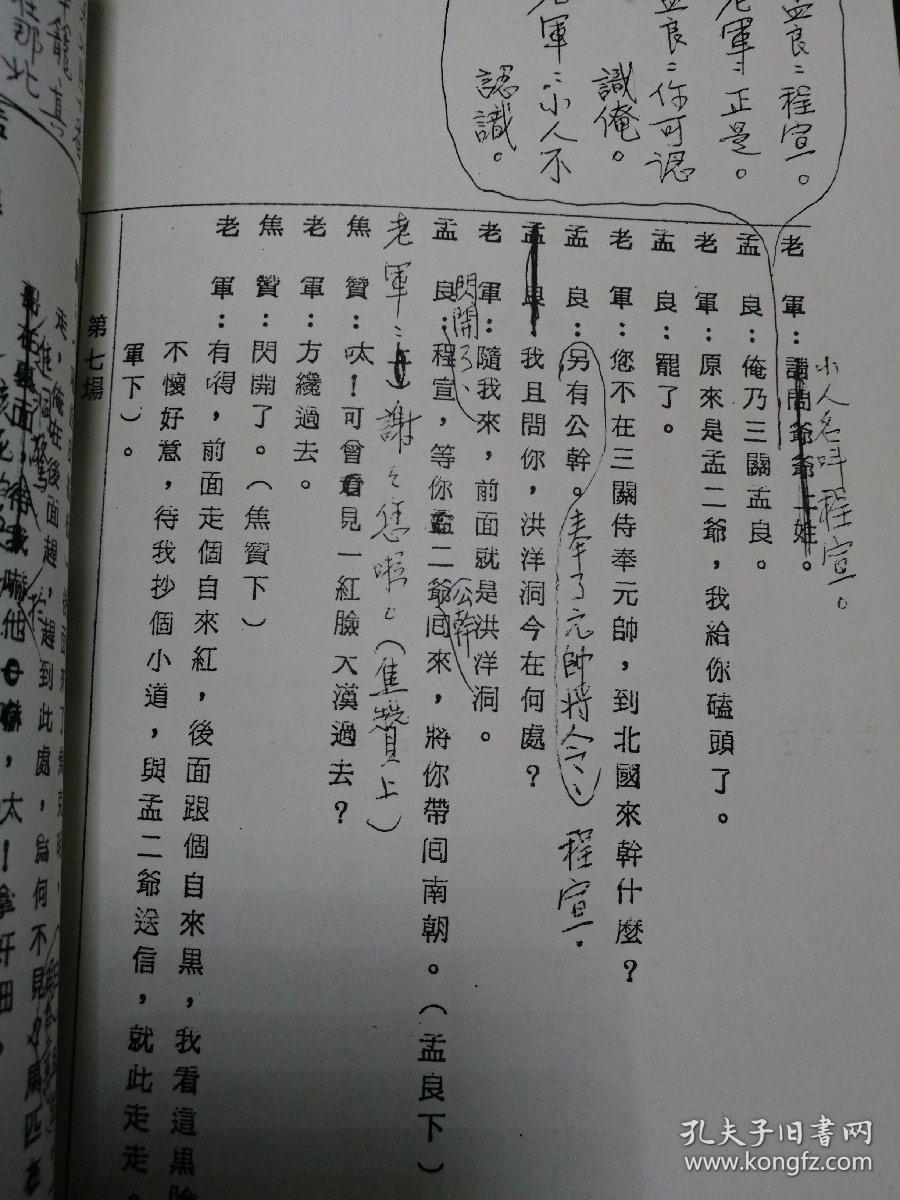 孟良：程宣。
老軍：正是。
孟良：你可認
識俺。
老軍：小人不
認識。
小人名叫程宣。
老　軍：請問爺爺上姓。
孟　良：俺乃三關孟良。
老　軍：原來是孟二爺，我給你磕頭了。
孟　良：罷了。
老　軍：您不在三關侍奉元帥，到北國來幹什麼？
孟　良：另有公幹。
奉了元帥將令
程宣
孟　良：我且問你，洪洋洞今在何處？
老　軍：隨我來，前面就是洪洋洞。
閃開了
公幹
孟　良：程宣，等你孟二爺回來，將你帶回南朝。（孟良下）
老軍：謝謝您啦。（焦贊上）
焦　贊：呔！可曾看見一紅臉大漢過去？
老　軍：方纔過去。
焦　贊：閃開了。（焦贊下）
老　軍：有呀，前面走個自來紅，後面跟個自來黑，我看這黑臉
不懷好意，待我抄個小道，與孟二爺送信，就此走走。
軍下）。
第七場
俺在後面趕，趕到此處，為何不見
馬匹
孔夫子旧书网
www.kongfz.com